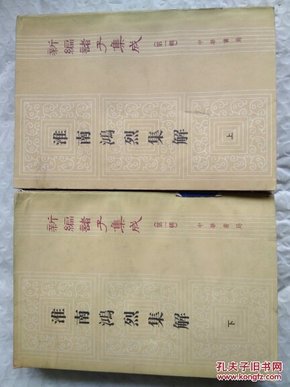 新編諸子集成
(第一輯)
中華書局
淮南鴻烈集解
上
新編諸子集成
(第一輯)
中華書局
淮南鴻烈集解
下
孔夫子旧书网